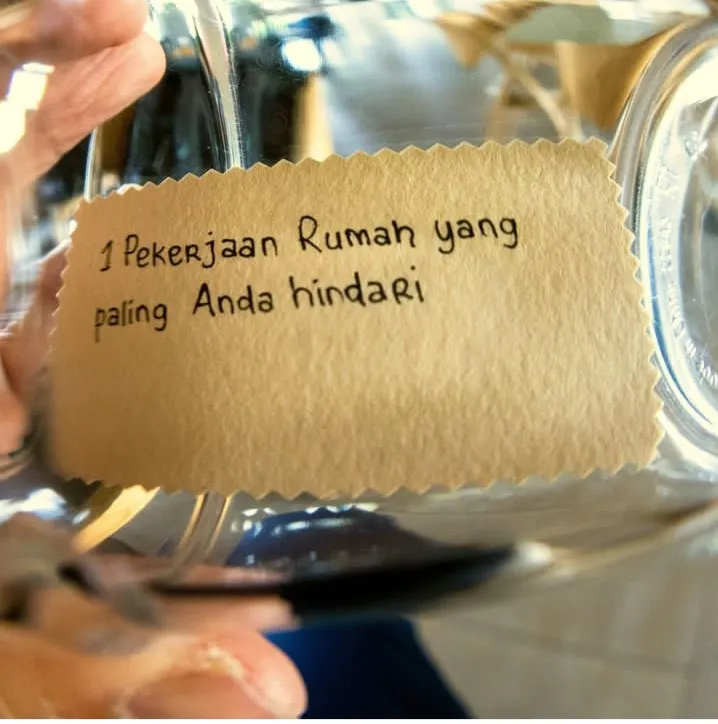 1 Pekerjaan Rumah yang
paling Anda hindari